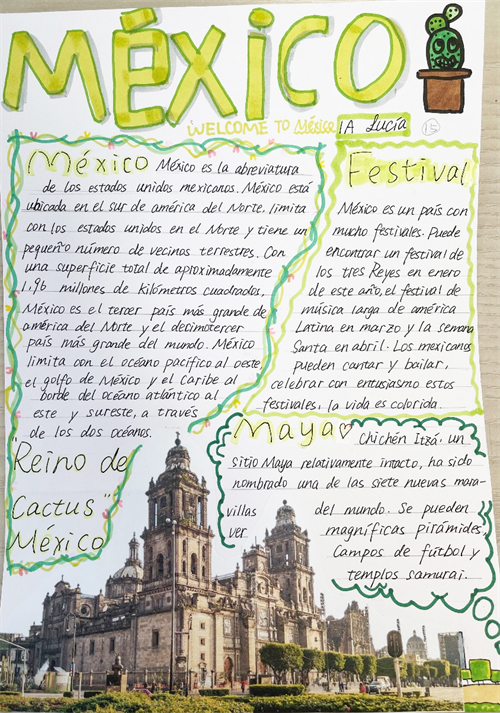 MÉXiCO
WELCOME TO México 1A Lucía 15
México México es la abreviatura
de los estados unidos mexicanos. México está
ubicada en el sur de américa del Norte, limita
con los estados unidos en el Norte y tiene un
pequeño número de vecinos terrestres. Con
una superficie total de aproximadamente
1,96 millones de kilómetros cuadrados,
México es el tercer país más grande de
américa del Norte y el decimotercer
país más grande del mundo. México
limita con el océano pacífico al oeste,
el golfo de México y el caribe al
borde del océano atlántico al
este y sureste, a través
de los dos océanos.
Festival
México es un país con
mucho festivales. Puede
encontrar un festival de
los tres Reyes en enero
de este año, el festival de
música larga de américa
Latina en marzo y la semana
Santa en abril. Los mexicanos
pueden cantar y bailar,
celebrar con entusiasmo estos
festivales, la vida es colorida.
"Reino de
Cactus"
México
Maya Chichén Itzá, un
sitio Maya relativamente intacto, ha sido
nombrado una de las siete nuevas mara-
villas del mundo. Se pueden
ver magníficas pirámides,
campos de fútbol y
templos samurai.